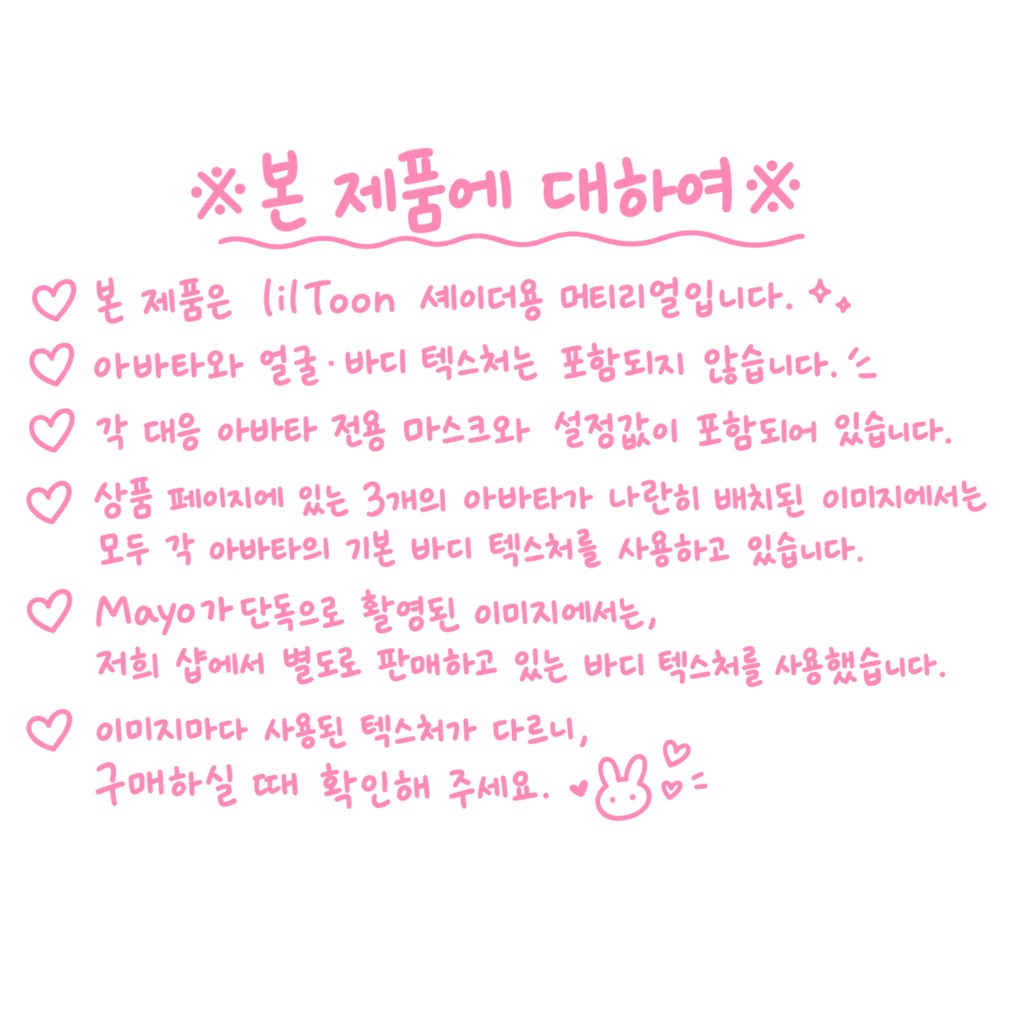 ※본 제품에 대하여※
♡ 본 제품은 lilToon 셰이더용 머티리얼입니다.
♡ 아바타와 얼굴·바디 텍스처는 포함되지 않습니다.
♡ 각 대응 아바타 전용 마스크와 설정값이 포함되어 있습니다.
♡ 상품 페이지에 있는 3개의 아바타가 나란히 배치된 이미지에서는
모두 각 아바타의 기본 바디 텍스처를 사용하고 있습니다.
♡ Mayo가 단독으로 촬영된 이미지에서는,
저희 샵에서 별도로 판매하고 있는 바디 텍스처를 사용했습니다.
♡ 이미지마다 사용된 텍스처가 다르니,
구매하실 때 확인해 주세요.